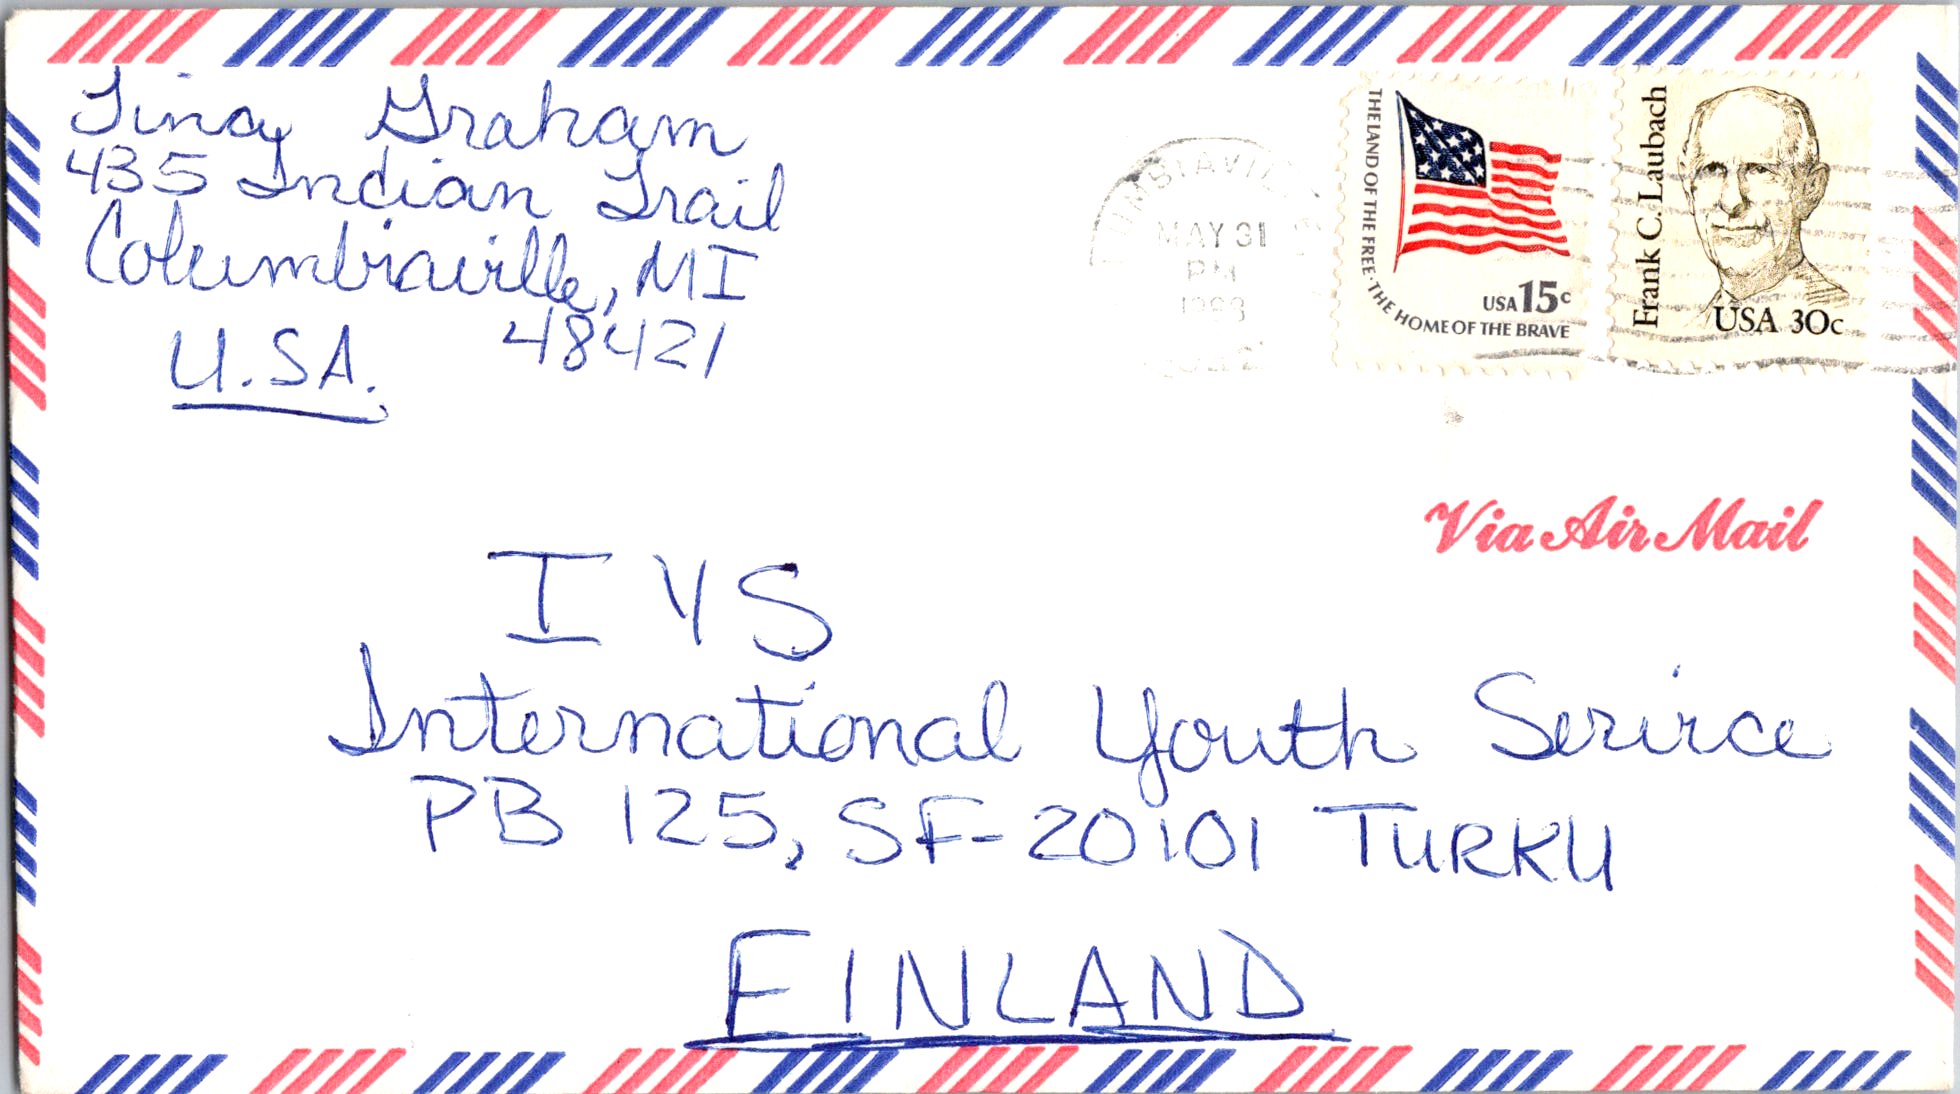 Tina Graham
435 Indian Trail
Columbiaville, MI
48421
U.S.A.
MAY 31
PM
THE LAND OF THE FREE · THE HOME OF THE BRAVE
USA 15c
Frank C. Laubach
USA 30c
Via Air Mail
IYS
International Youth Service
PB 125, SF-20101 TURKU
FINLAND